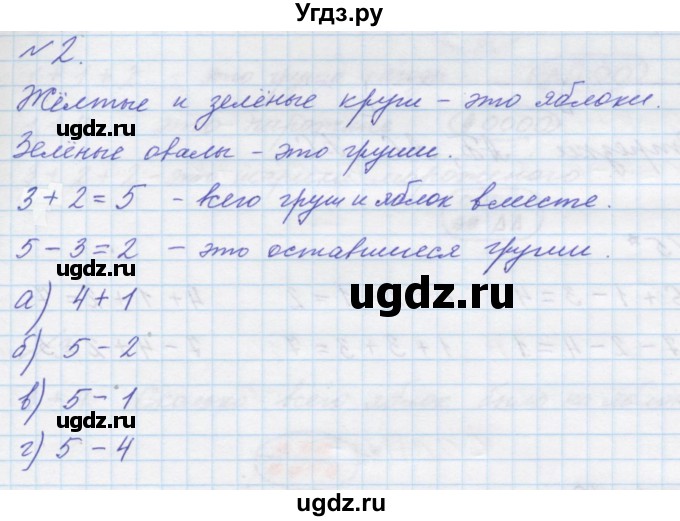 Угдз.ру
№ 2.
Жёлтые и зелёные круги – это яблоки.
ugdz.ru
ugdz.ru
Зелёные овалы – это груши.
3 + 2 = 5 – всего груш и яблок вместе.
5 – 3 = 2 – это оставшиеся груши.
а) 4 + 1
ugdz.ru
б) 5 – 2
ugdz.ru
ugdz.ru
в) 5 – 1
г) 5 – 4
ugdz.ru
ugdz.ru
ugdz.ru